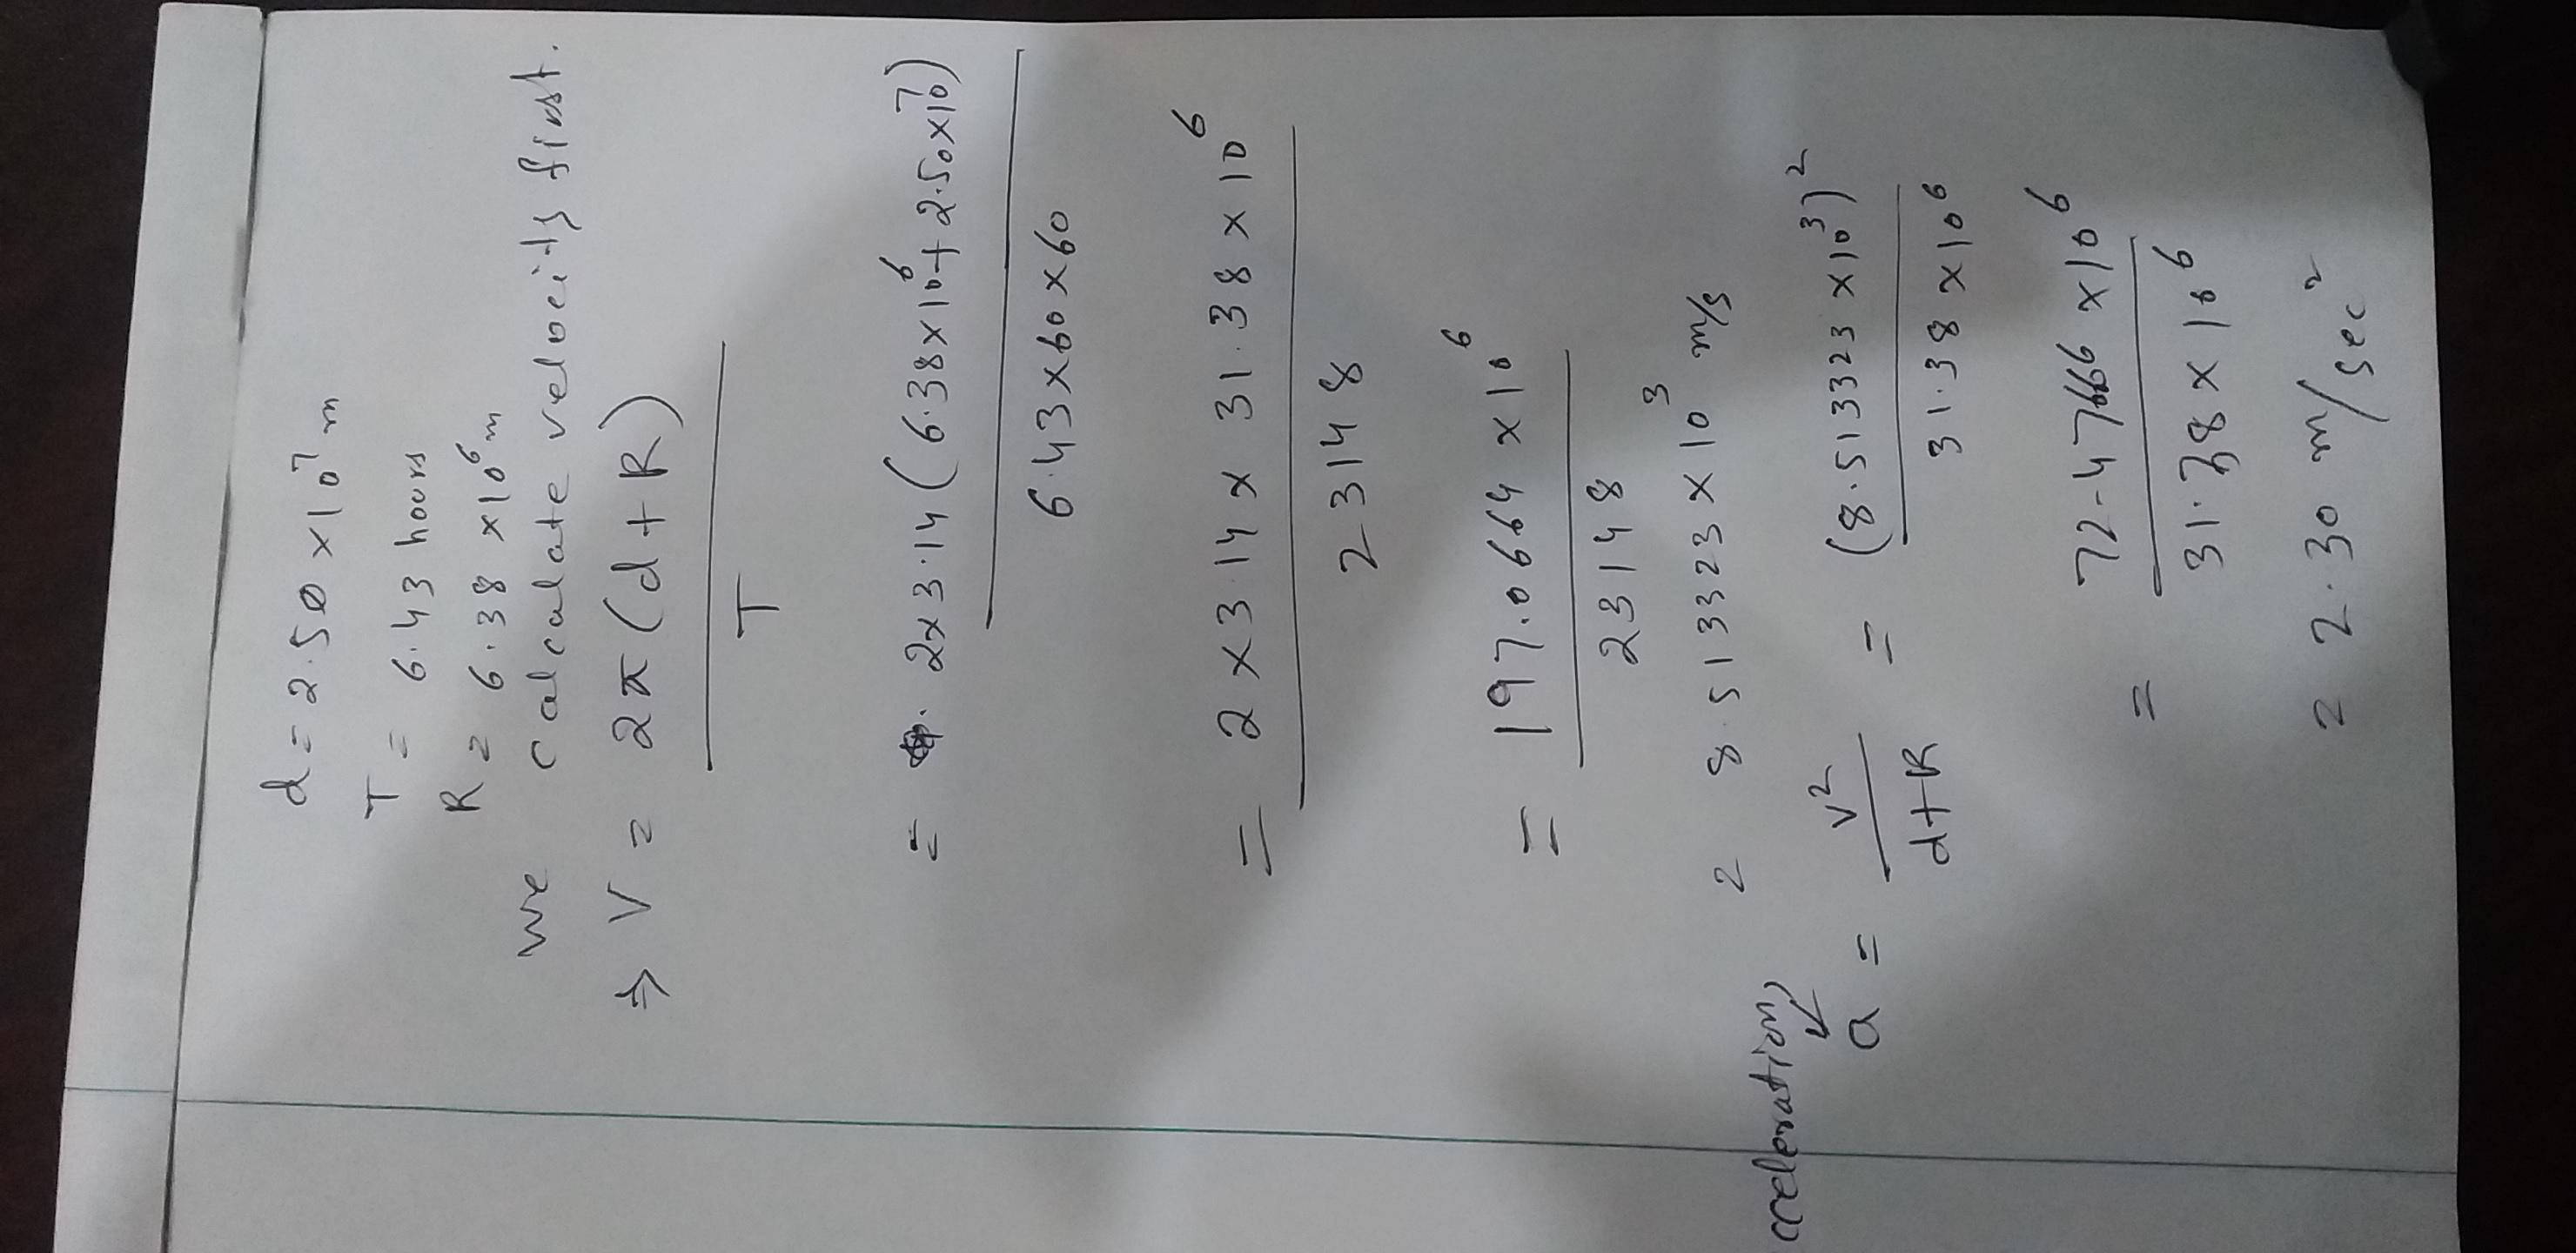 d = 2.50 × 10⁷ m
T = 6.43 hours
R = 6.38 × 10⁶ m
we calculate velocity first.
⇒ V = 2π(d+R) / T
= 2×3.14(6.38×10⁶+2.50×10⁷) / 6.43×60×60
= 2×3.14×31.38×10⁶ / 23148
= 197.0664×10⁶ / 23148
= 8.513323×10³ m/s
acceleration,
a = v² / d+R = (8.513323×10³)² / 31.38×10⁶
= 72.47666×10⁶ / 31.38×10⁶
= 2.30 m/sec²